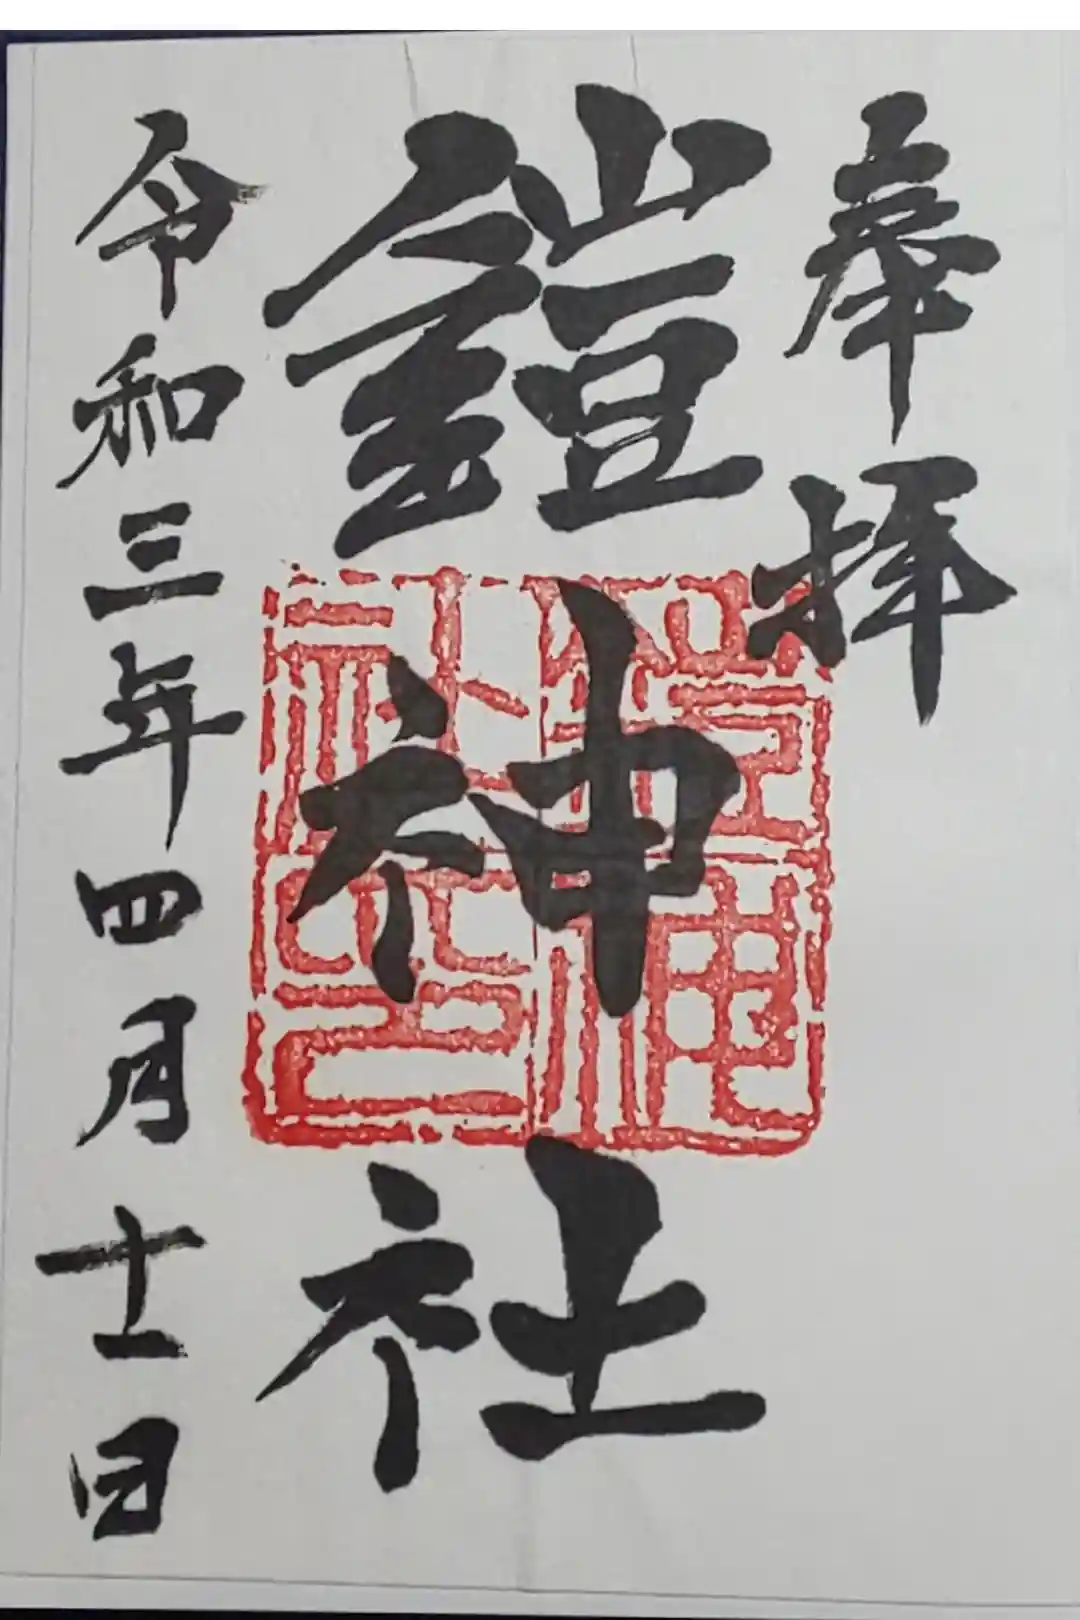 奉拝
鎧神社
鎧神社印
令和三年四月十一日